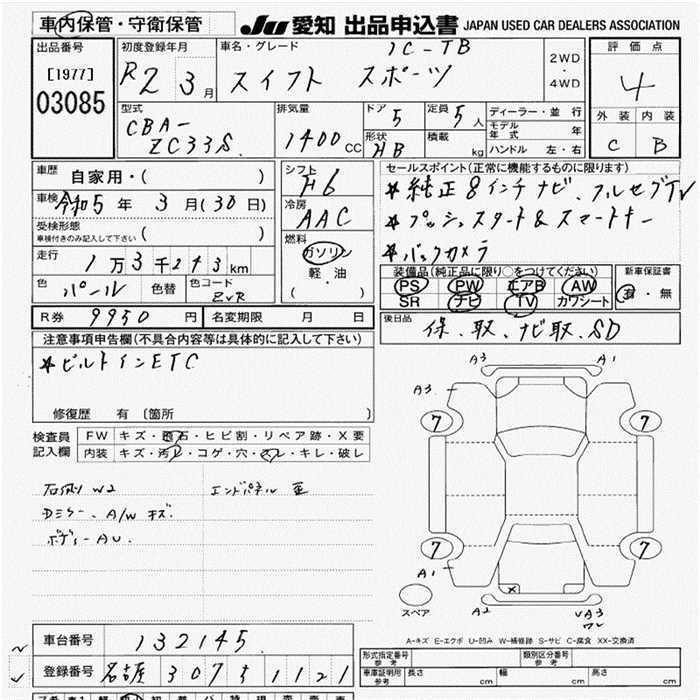 車内保管・守衛保管
JU 愛知 出品申込書 JAPAN USED CAR DEALERS ASSOCIATION
出品番号
[1977]
03085
初度登録年月
R2 3月
車名・グレード
IC-TB
スイフト スポーツ
2WD
・
4WD
評価点
4
外装 内装
C B
型式
CBA-
ZC33S
排気量
1400cc
ドア 5
形状 HB
定員 5人
積載 kg
ディーラー・並行
モデル年式 年
ハンドル 左・右
車歴 自家用・( )
車検 令和5年3月(30日)
受検形態
車検付きのみ記入して下さい ( )
走行 1万3千243km
色 パール 色替 色コード ZVR
シフト
F6
冷房
AAC
燃料
ガソリン
軽・油
( )
セールスポイント(正常に機能するものに限ります)
★純正8インチナビ、フルセグTV
★プッシュスタート&スマートキー
★バックカメラ
装備品(純正品に限り○をつけてください) 新車保証書
PS PW エアB AW 有・無
SR ナビ TV カワシート
R券 9950円 名変期限 月 日
後日品 保、取、ナビ取、SD
注意事項申告欄(不具合内容等は具体的に記入して下さい)
★ビルトインETC
修復歴 有 〔箇所 〕
検査員記入欄
FW キズ・飛石・ヒビ割・リペア跡・X要
内装 キズ・汚レ・コゲ・穴・スレ・キレ・破レ
石側 W2 エンドパネル 歪
Dミラー、A/W キズ
ボディーAU
A3 A1
A3
7 7
7 7
A1
スペア
x
A2 VA3
W
A-キズ E-エクボ U-凹み W-補修跡 S-サビ C-腐食 XX-交換済
車台番号 132145
登録番号 名古屋 307 す 1121
形式指定番号 参考
類別区分番号 参考
車庫証明用 参考 長さ cm 幅 cm 高さ cm